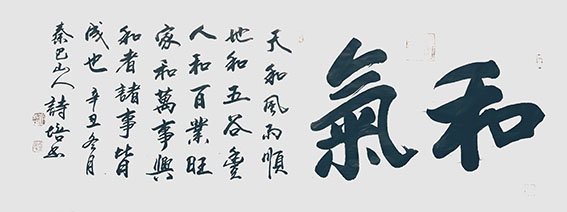 和氣
天和風雨順
地和五谷豐
人和百業旺
家和萬事興
和者諸事皆
成也 辛丑冬月
秦巴山人詩培書